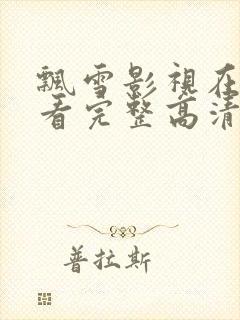 飄雪影視在
看完整高清
普拉斯